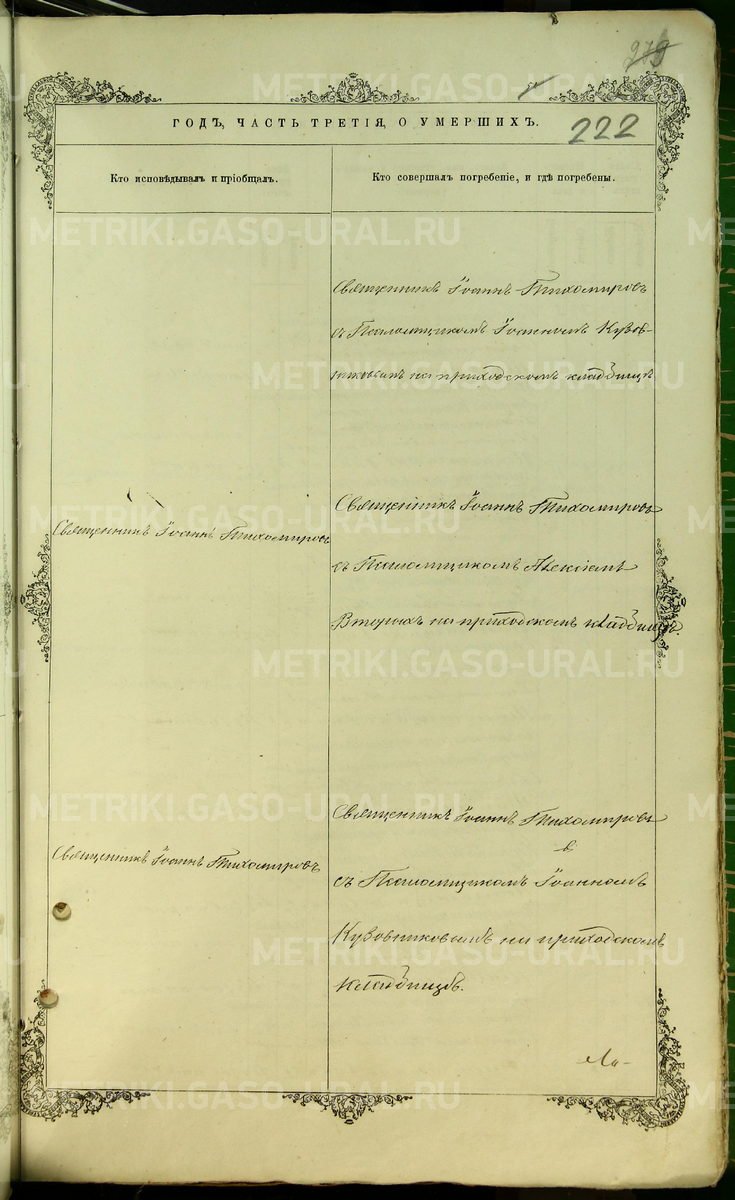 279
222
ГОДЪ, ЧАСТЬ ТРЕТІЯ, О УМЕРШИХЪ.
Кто исповѣдывалъ и пріобщалъ.
Кто совершалъ погребеніе, и гдѣ погребены.
Священникъ Іоаннъ Тихомировъ
съ Псаломщикомъ Іоанномъ Кузов-
никовымъ на приходскомъ кладбищѣ
Священникъ Іоаннъ Тихомировъ
Священникъ Іоаннъ Тихомировъ
съ Псаломщикомъ Алексіемъ
Вторыхъ на приходскомъ кладбищѣ.
Священникъ Іоаннъ Тихомировъ
Священникъ Іоаннъ Тихомировъ
съ Псаломщикомъ Іоанномъ
Кузовниковымъ на приходскомъ
кладбищѣ.
METRIKI.GASO-URAL.RU